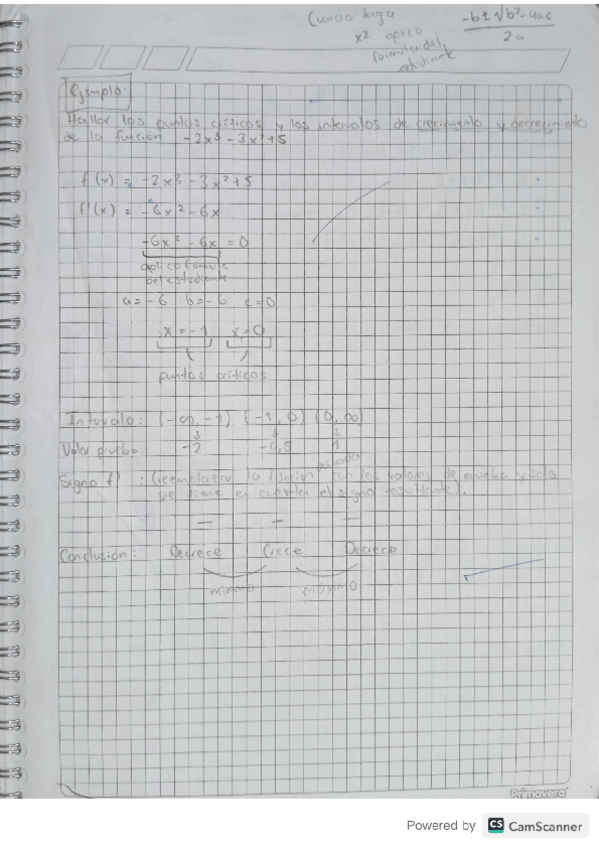 Cuando tenga
x² aplico
formula del
estudiante
-b±√b²-4ac
2a
Ejemplo:
Hallar los puntos críticos y los intervalos de crecimiento y decrecimiento
de la función -2x³-3x²+5
f(x) = -2x³-3x²+5
f'(x) = -6x²-6x
-6x²-6x=0
aplico formula
del estudiante
a=-6 b=-6 c=0
x=-1 x=0
puntos críticos
Intervalo: (-∞,-1) (-1,0) (0,∞)
Valor prueba: -2 -0,5 1
Signo f' : (reemplazar la función con los valores de prueba y solo
se tiene en cuenta el signo resultante).
— — —
Conclusión: Decrece Crece Decrece
minimo maximo
Primavera
Powered by CS CamScanner